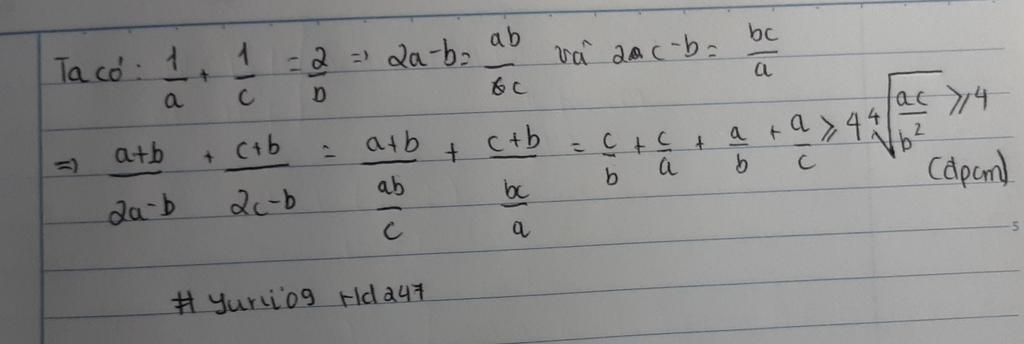 Ta có: 1/a + 1/c = 2/b => 2a-b = ab/c và 2c-b = bc/a
=> a+b/2a-b + c+b/2c-b = a+b/ab/c + c+b/bc/a = c/b + c/a + a/b + a/c ≥ 4 ⁴√ac/b² ≥ 4
(đpcm)
# yurii09 Hd247
5